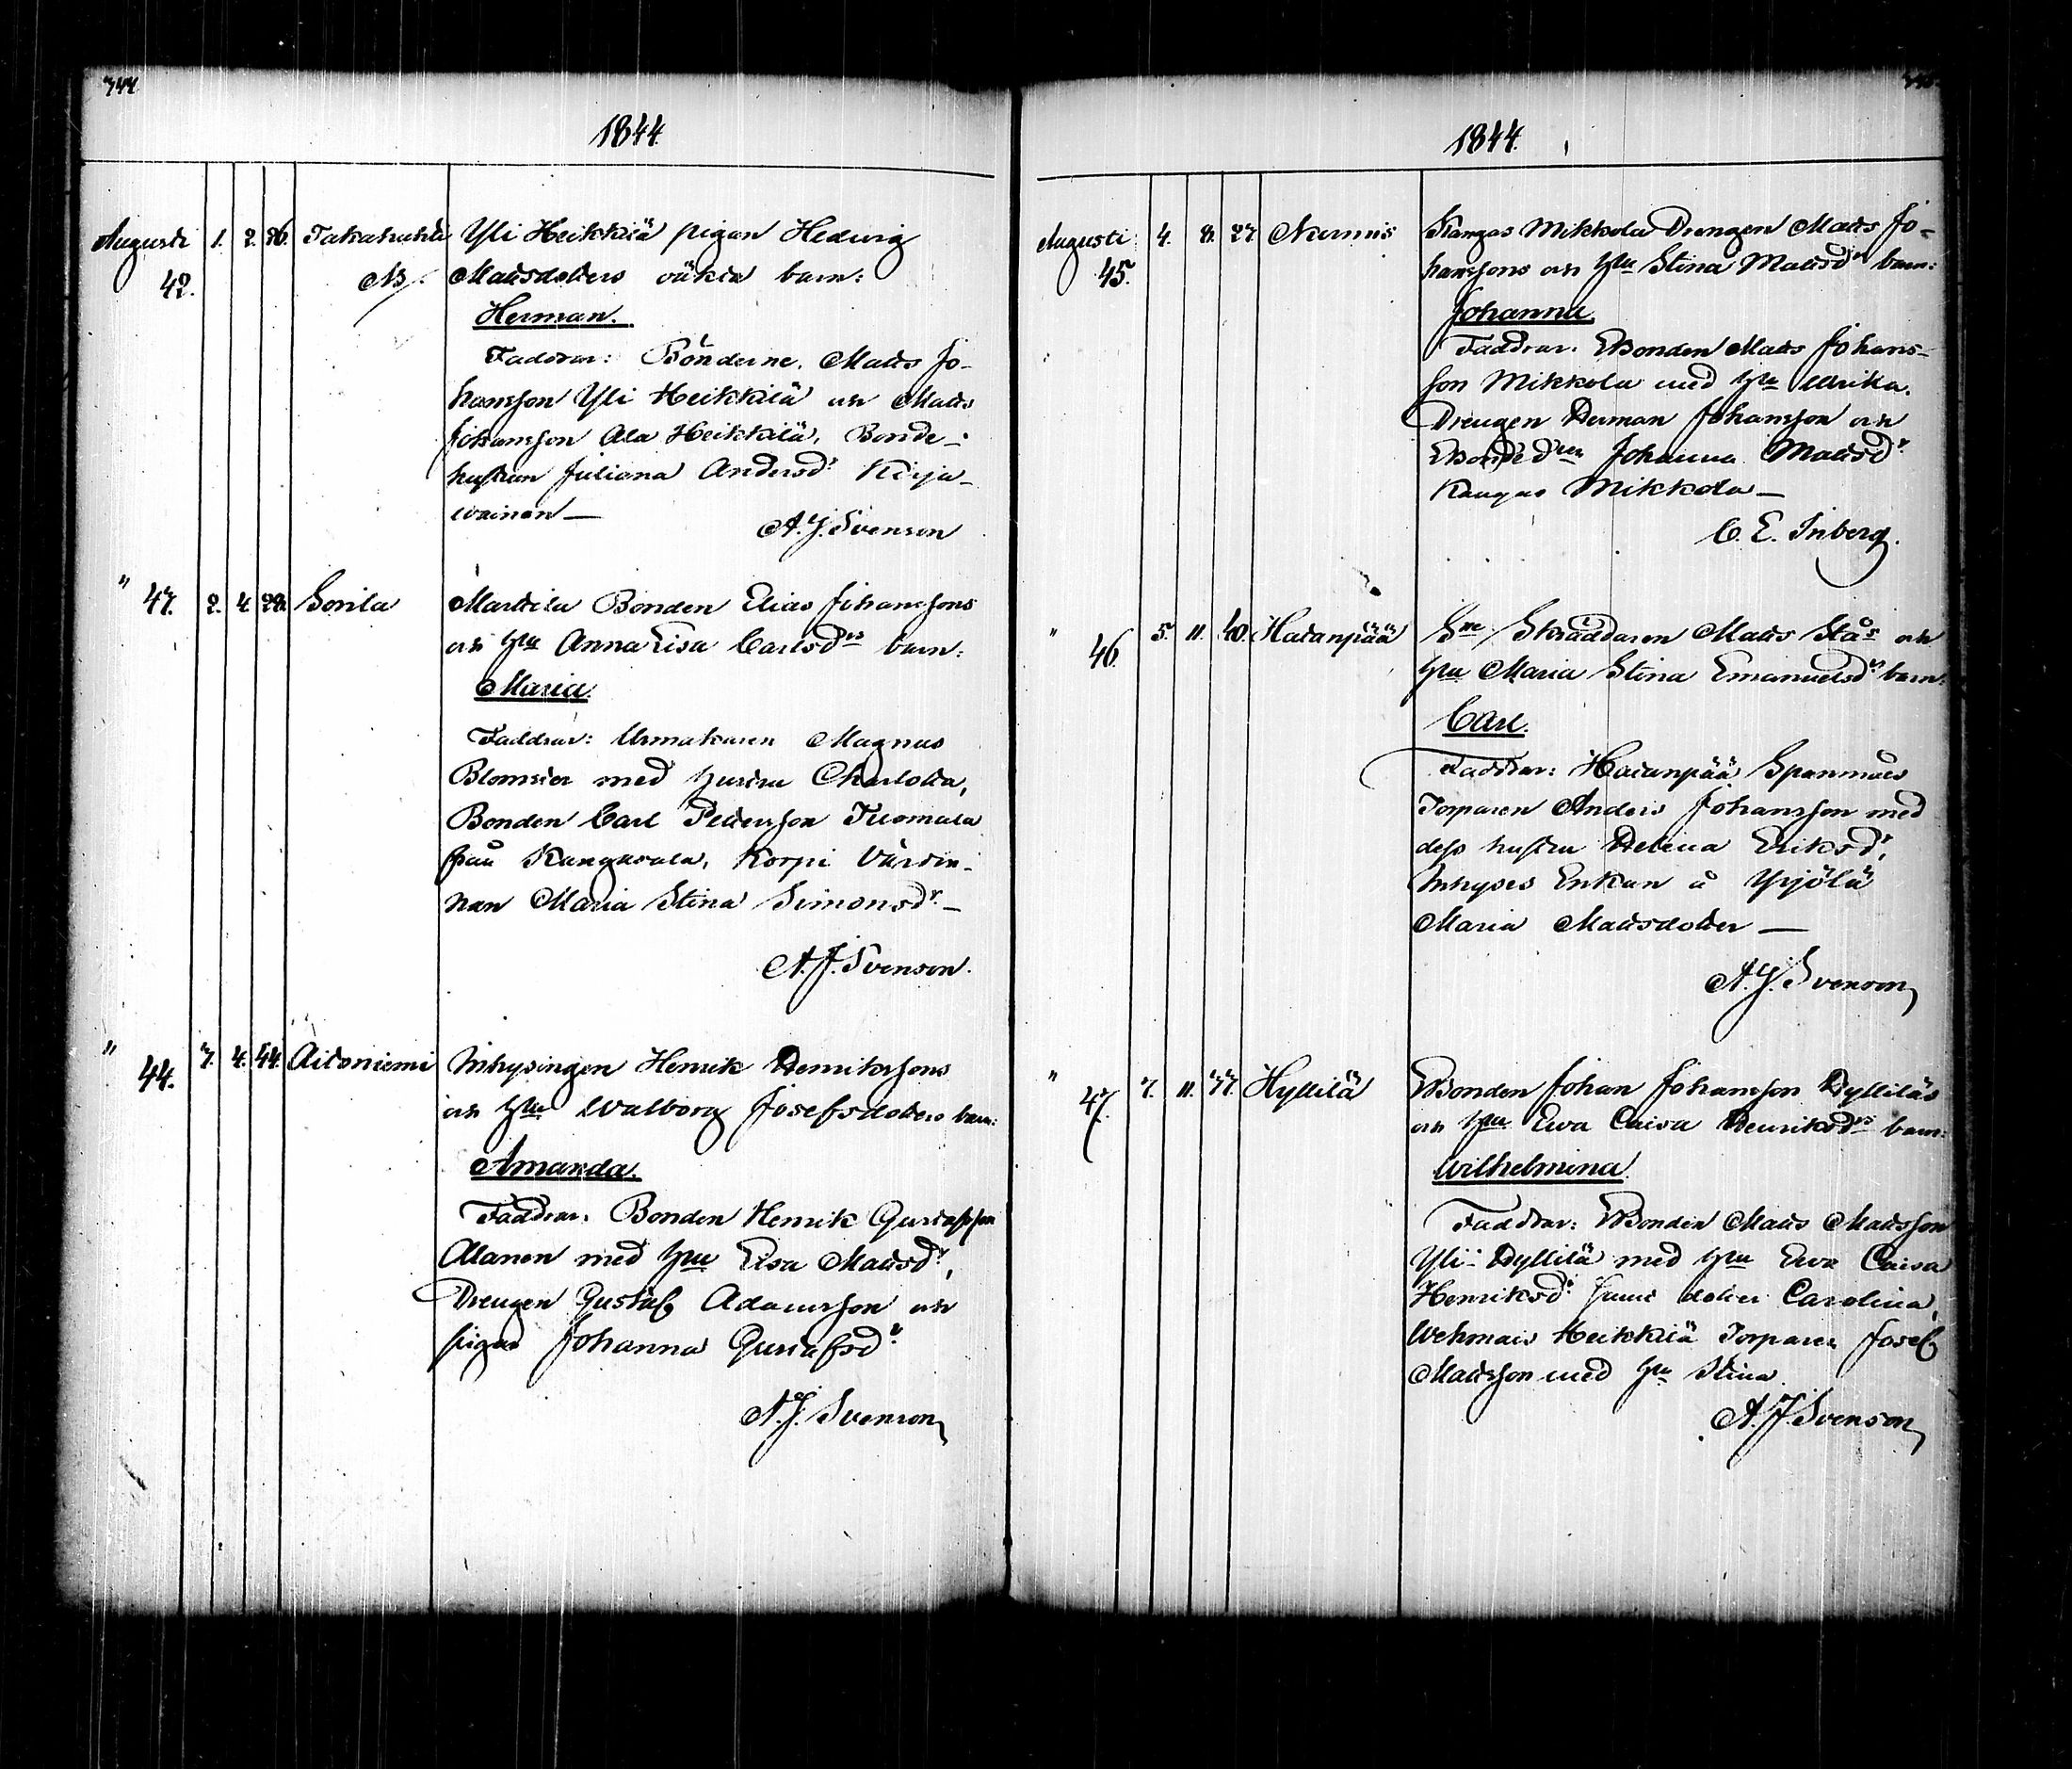 344
1844.
Augusti 1. 2. 26. Takahuhti Yli Heikkilä pigan Hedvig
42. Nb. Mattsdotters oäkta barn:
Herman.
Faddrar: Bönderne, Matts Jo-
hansson Yli Heikkilä och Matts
Johansson Ala Heikkilä, Bonde-
hustrun Juliana Andersdr Kirja-
wainen —
A. J. Svenson
" 43. 2. 4. 28. Sorila Marttila Bonden Elias Johanssons
och hru Anna Lisa Carlsdrs barn:
Maria.
Faddrar: Urmakaren Magnus
Blomster med hustru Charlotta,
Bonden Carl Pettersson Tuomala
från Kangasala, Korpi Värdin-
nan Maria Stina Simonsdr —
A. J. Svenson.
" 44. 3. 4. 44. Aitoniemi Inhysingen Henrik Henrikssons
och hru Walborg Josefsdotters barn:
Amanda.
Faddrar: Bonden Henrik Gustafsson
Alanen med hru Lisa Mattsdr,
Drengen Gustaf Adamsson och
pigan Johanna Gustafsdr
A. J. Svenson
1844.
Augusti 4. 8. 27. Nurmis Kangas Mikkola Drengen Matts Jo-
45. hanssons och hru Stina Mattsdrs barn:
Johanna.
Faddrar: Bonden Matts Johans-
son Mikkola med hru Ulrika.
Drengen Herman Johansson och
Bondedrn Johanna Mattsdr
Kangas Mikkola —
C. E. Inberg.
" 46. 5. 11. 40. Hatanpää Sne Skräddaren Matts Stås och
hru Maria Stina Emanuelsdrs barn:
Carl.
Faddrar: Hatanpää Spanmåls
Torparen Anders Johansson med
dess hustru Helena Eriksdr,
Inhyses Enkan å Yrjölä
Maria Mattsdotter —
A. J. Svenson
" 47. 7. 11. 37. Hyllilä Bonden Johan Johansson Hylliläs
och hru Ewa Caisa Henriksdrs barn:
Wilhelmina.
Faddrar: Bonden Matts Mattsson
Yli-Hyllilä med hru Ewa Caisa
Henriksdr samt dotter Carolina,
Wehmais Heikkilä Torparen Josef
Mattsson med hru Stina
A. J. Svenson